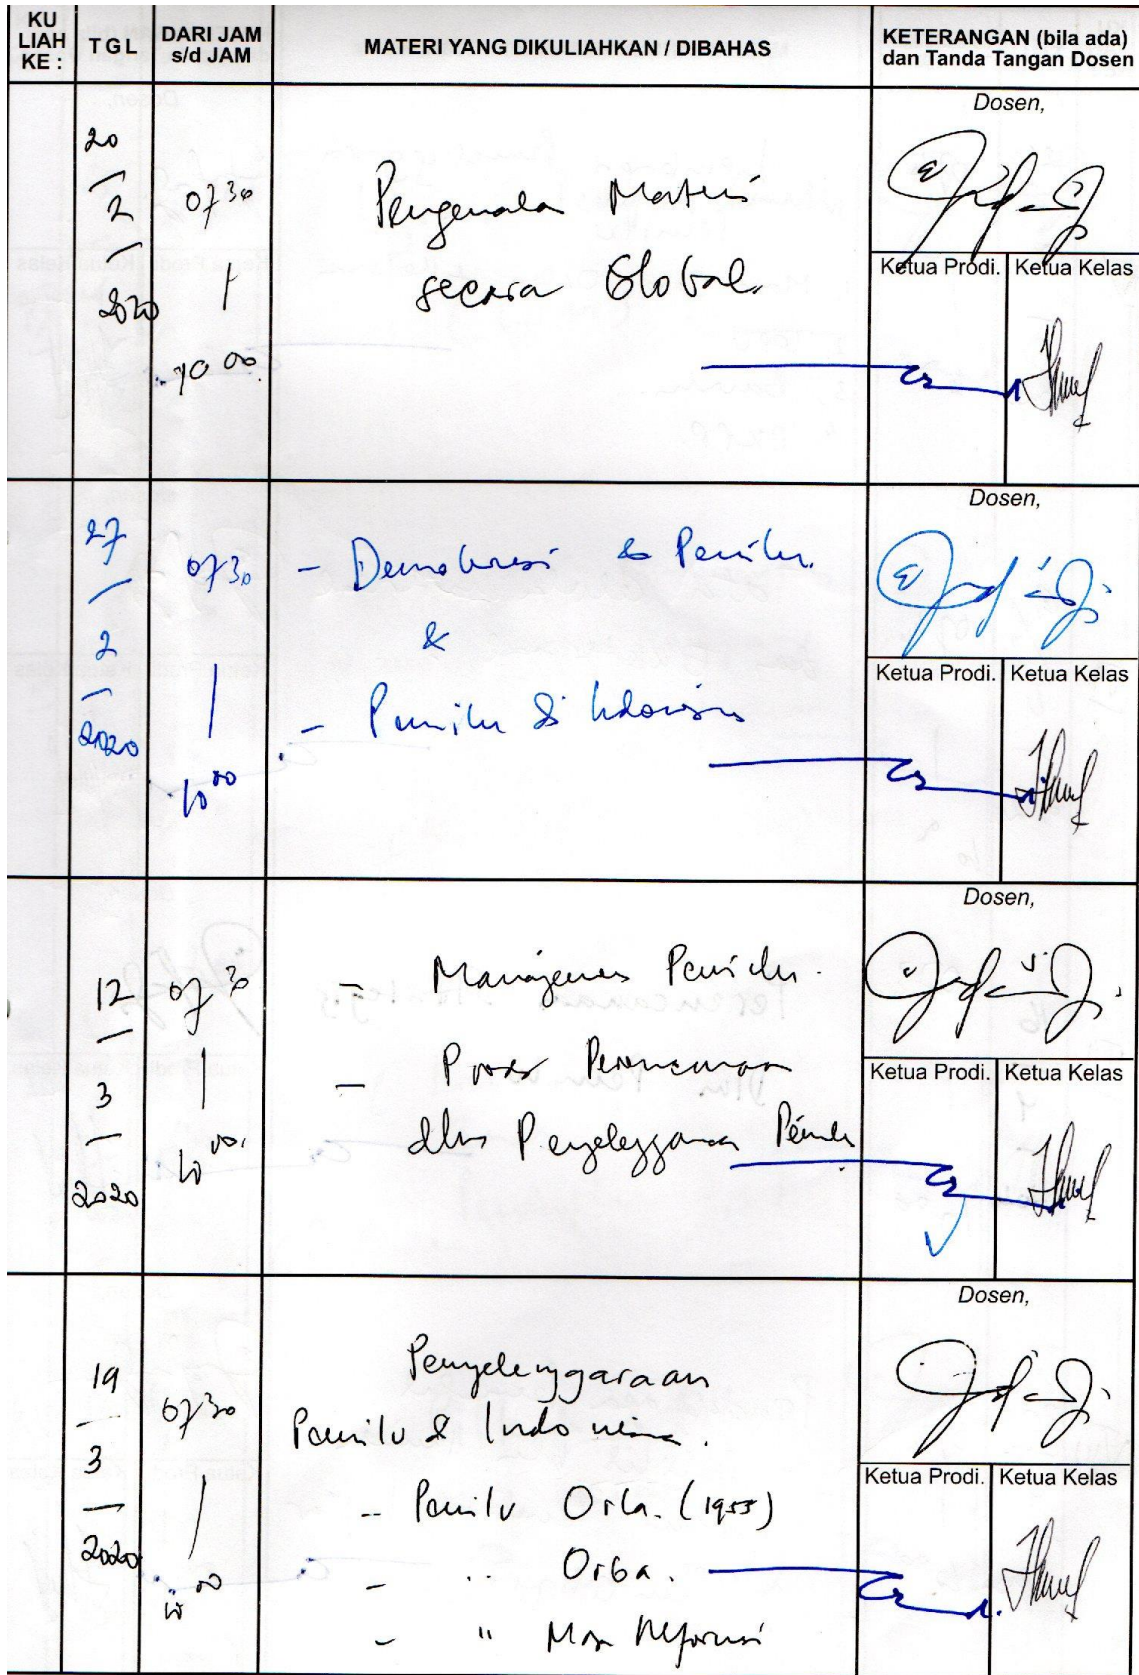 KU
LIAH
KE :
TGL
DARI JAM
s/d JAM
MATERI YANG DIKULIAHKAN / DIBAHAS
KETERANGAN (bila ada)
dan Tanda Tangan Dosen
20
2
2020
07 30
10 00
Pengenalan Materi
secara Global
Dosen,
Ketua Prodi. Ketua Kelas
27
2
2020
07 30
10 00
- Demokrasi & Pemilu
&
- Pemilu di Indonesia
Dosen,
Ketua Prodi. Ketua Kelas
12
3
2020
07 30
10 00
- Manajemen Pemilu
- Proses Perencanaan
dlm Penyelenggaraan Pemilu
Dosen,
Ketua Prodi. Ketua Kelas
19
3
2020
07 30
10 00
Penyelenggaraan
Pemilu di Indonesia.
- Pemilu Orla. (1955)
- " Orba.
- " Masa Reformasi
Dosen,
Ketua Prodi. Ketua Kelas